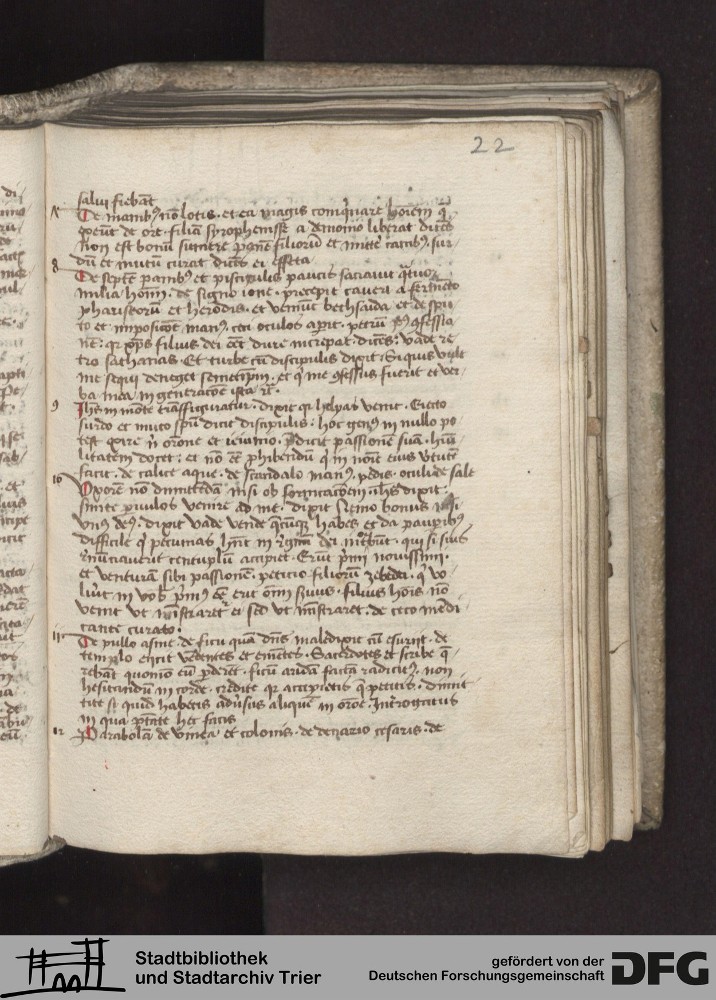 22
salui fiebāt
De manibꝰ nō lotis · et ea magis coinq̄nare hoīem q̄
exeūt de ore · filiā syrophenisse a demonio liberat dicēs
Non est bonū sumere panē filiorū et mittē canibꝰ · sur
dū et mutū curat dicēs ei effeta
8 De septē panibꝰ et pisciculis paucis saciauit q̄tuor
milia hoīm · de signo ione · precepit caueri a fermēto
phariseorū et herodis · et veniūt bethsaida et de spu
to et imposicōe manꝰ ceci oculos aperit · petrū
filius dei eēt dure increpat dicēs · vade re
tro sathanas · Et turbe cū discipulis dixit · Siquis vult
me sequi deneget semetipm̄ · et q̄ me ꝯfessus fuerit et ver
ba mea in generacōe ista
9 Ihs̄ in mōte trāsfiguratur · dixit qꝫ helyas venit · Eiecto
surdo et muto spū dicit discipulis · hoc genꝰ in nullo po
test exire nͥ orōne et ieiunio · p̄dicit passionē suā · hūi
litatem docet · et nō eē ꝓhibendū q̄ in noīe eius vtutē
facit · de calice aque · de scandalo manꝰ pedis · oculi de sale
10 Vxorē nō dimittēdā nisi ob fornicacōem · ihs̄ dixit ·
sinite ꝑuulos venire ad me · dixit Nemo bonus nisi
vnus deꝰ · dixit vade vende q̄cūqꝫ habes et da pauꝑibꝰ
difficile q̄ pecunias hn̄t in regnū dei intrabūt · qui si suis
r̄nūciauerit centuplū accipiet · Erūt pͥmi nouissimi ·
et venturā sibi passionē · peticio filiorū zebedei · q̄ vo
luͥt in vob̄ pͥmꝰ eē erit oīm seruus · filius hoīs nō
venit vt mīstraret̄ ei sꝫ vt mīstraret · de ceco mendi
cante curato ·
11 De pullo asine · de ficu quā dn̄s maledixit cū esurit · de
templo eicit vēdentes et emētes · Sacerdotes et scribe q̄
rebāt quomo eū ꝑderēt · ficū aridā factā radicitꝰ · non
hesitandū in corde · credite qꝫ accipietis q̄ petitis · dimit
tite si quid habetis adūsus aliquē in orōe · Interrogatus
in qua ptāte hec facis
12 Parabolā de vinea et colonis · de denario cesaris · de
Stadtbibliothek
und Stadtarchiv Trier
gefördert von der
Deutschen Forschungsgemeinschaft
DFG